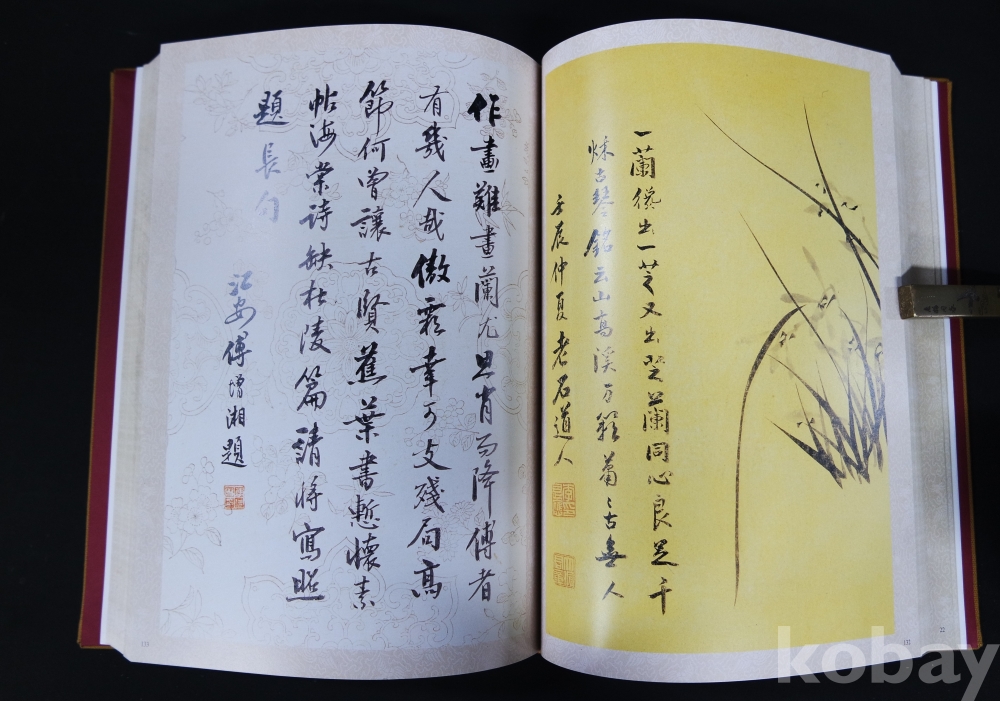 一蘭纔出一芝又出芝蘭同心良足千
秌古琴銘云山高溪万籟蕭〻古無人
壬辰仲夏老石道人
作畫難畫蘭尤且肖而降傅者
有幾人哉傲霜幸可支殘局高
節何曾讓古賢蕉葉書慙懷素
帖海棠詩缺杜陵篇請將寫照
題長句
江安傅增湘題
kobay